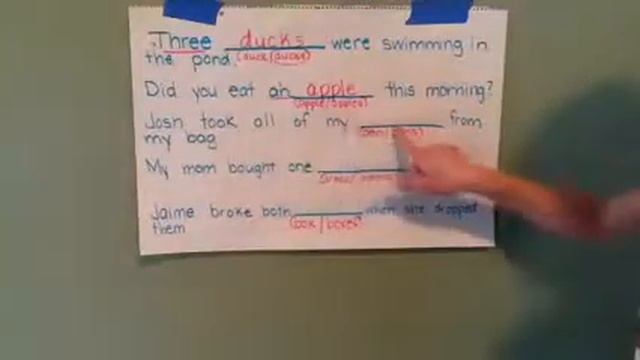 Three ducks were swimming in
the pond. (duck/ducks)
Did you eat an apple this morning?
(apple/
Josh took all of my from
my bag
My mom bought one
Jaime broke both when she dropped
them (box/boxes)